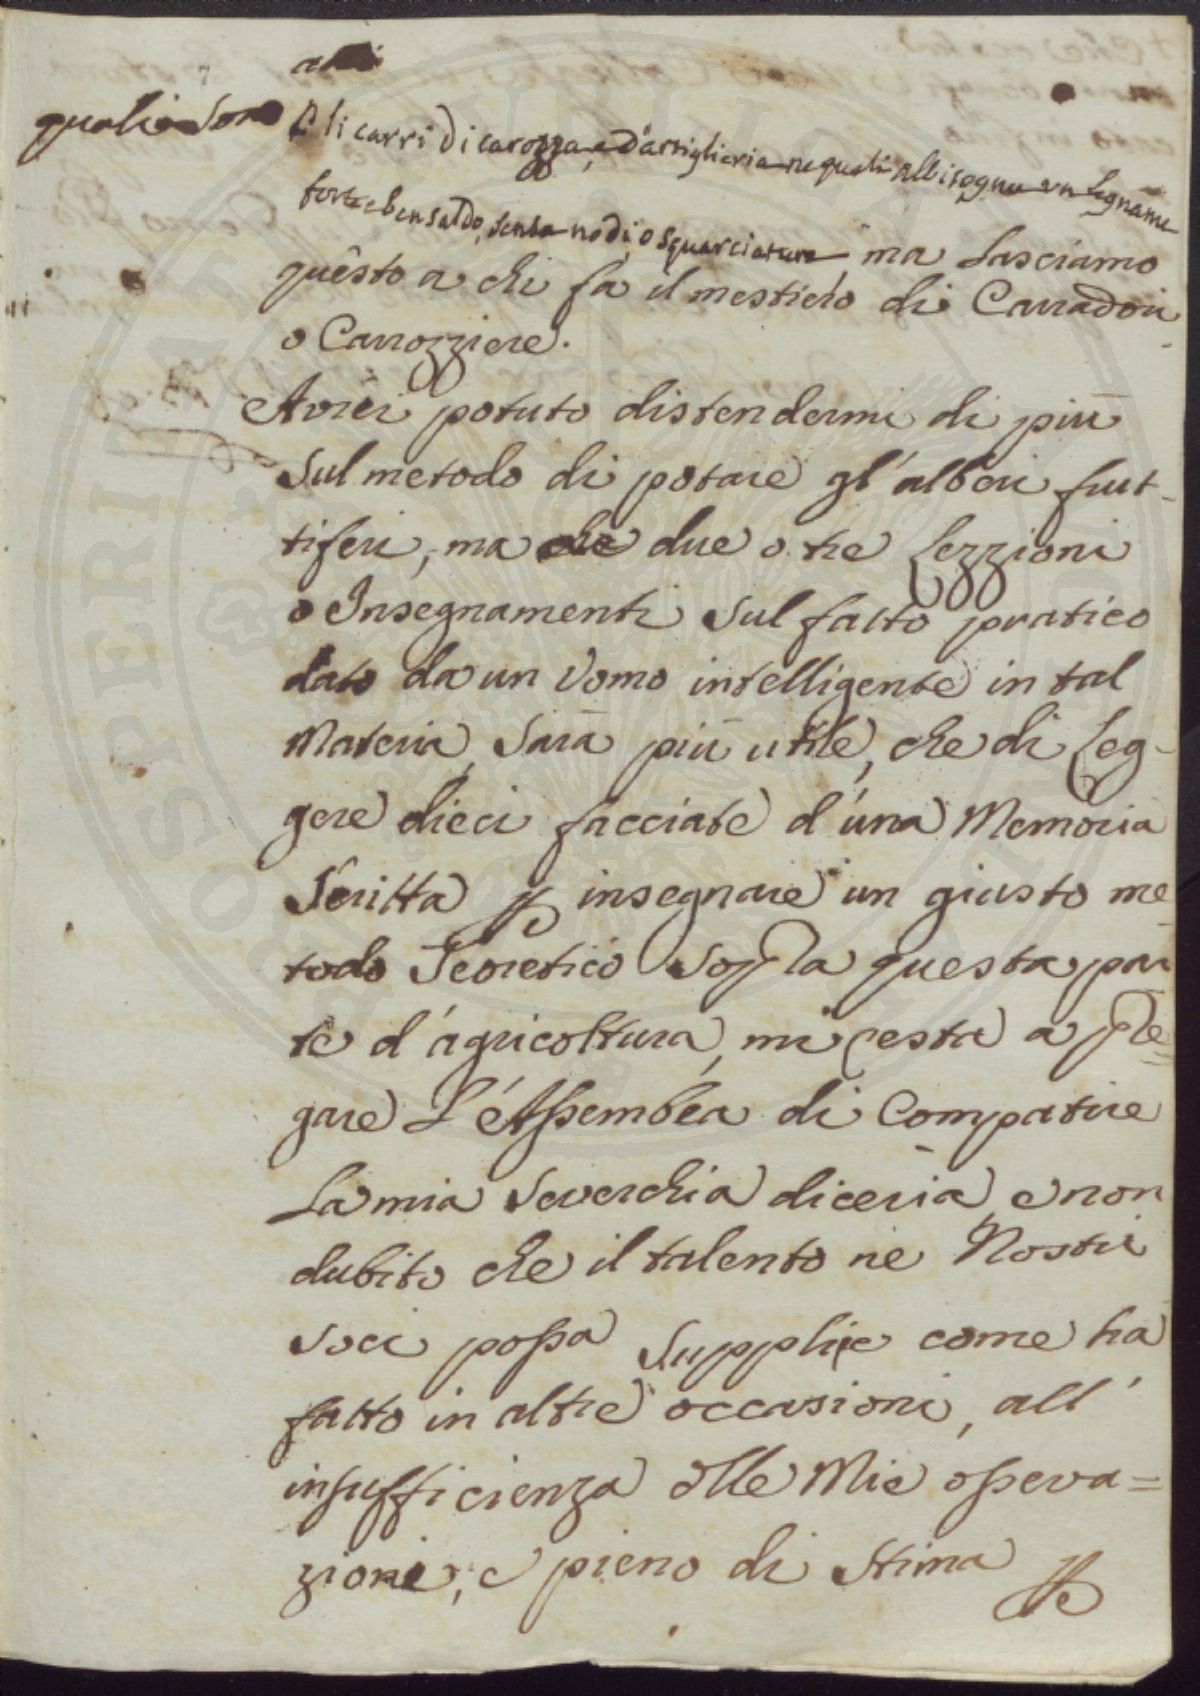 quali sono
Pli carri di carozza, e d'artiglieria ne quali abbisogna un legname
forte e ben saldo, senza nodi, o squarciature, ma lasciamo
quêsto a chi fà il mestiero di Carradori
o Carrozziere.
Avrèi potuto distendermi di più
sul metodo di potare gl'alberi frut-
tiferi, ma due o tre Lezzioni
o Insegnamenti sul fatto pratico
dato da un Uomo intelligente in tal
Materia, sarà più utile, che di Leg-
gere dieci facciate d'una Memoria
scritta p insegnare un giusto me-
todo Teoretico sopra questa par
te d'agricoltura, mi resta a pre=
gare L'Assemblea di Compatire
La mia soverchia diceria, e non
dubito che il talento ne Nostri
soci possa supplire come ha
fatto in altre occasioni, all'
insufficienza delle Mie osserva=
zioni, e pieno di stima